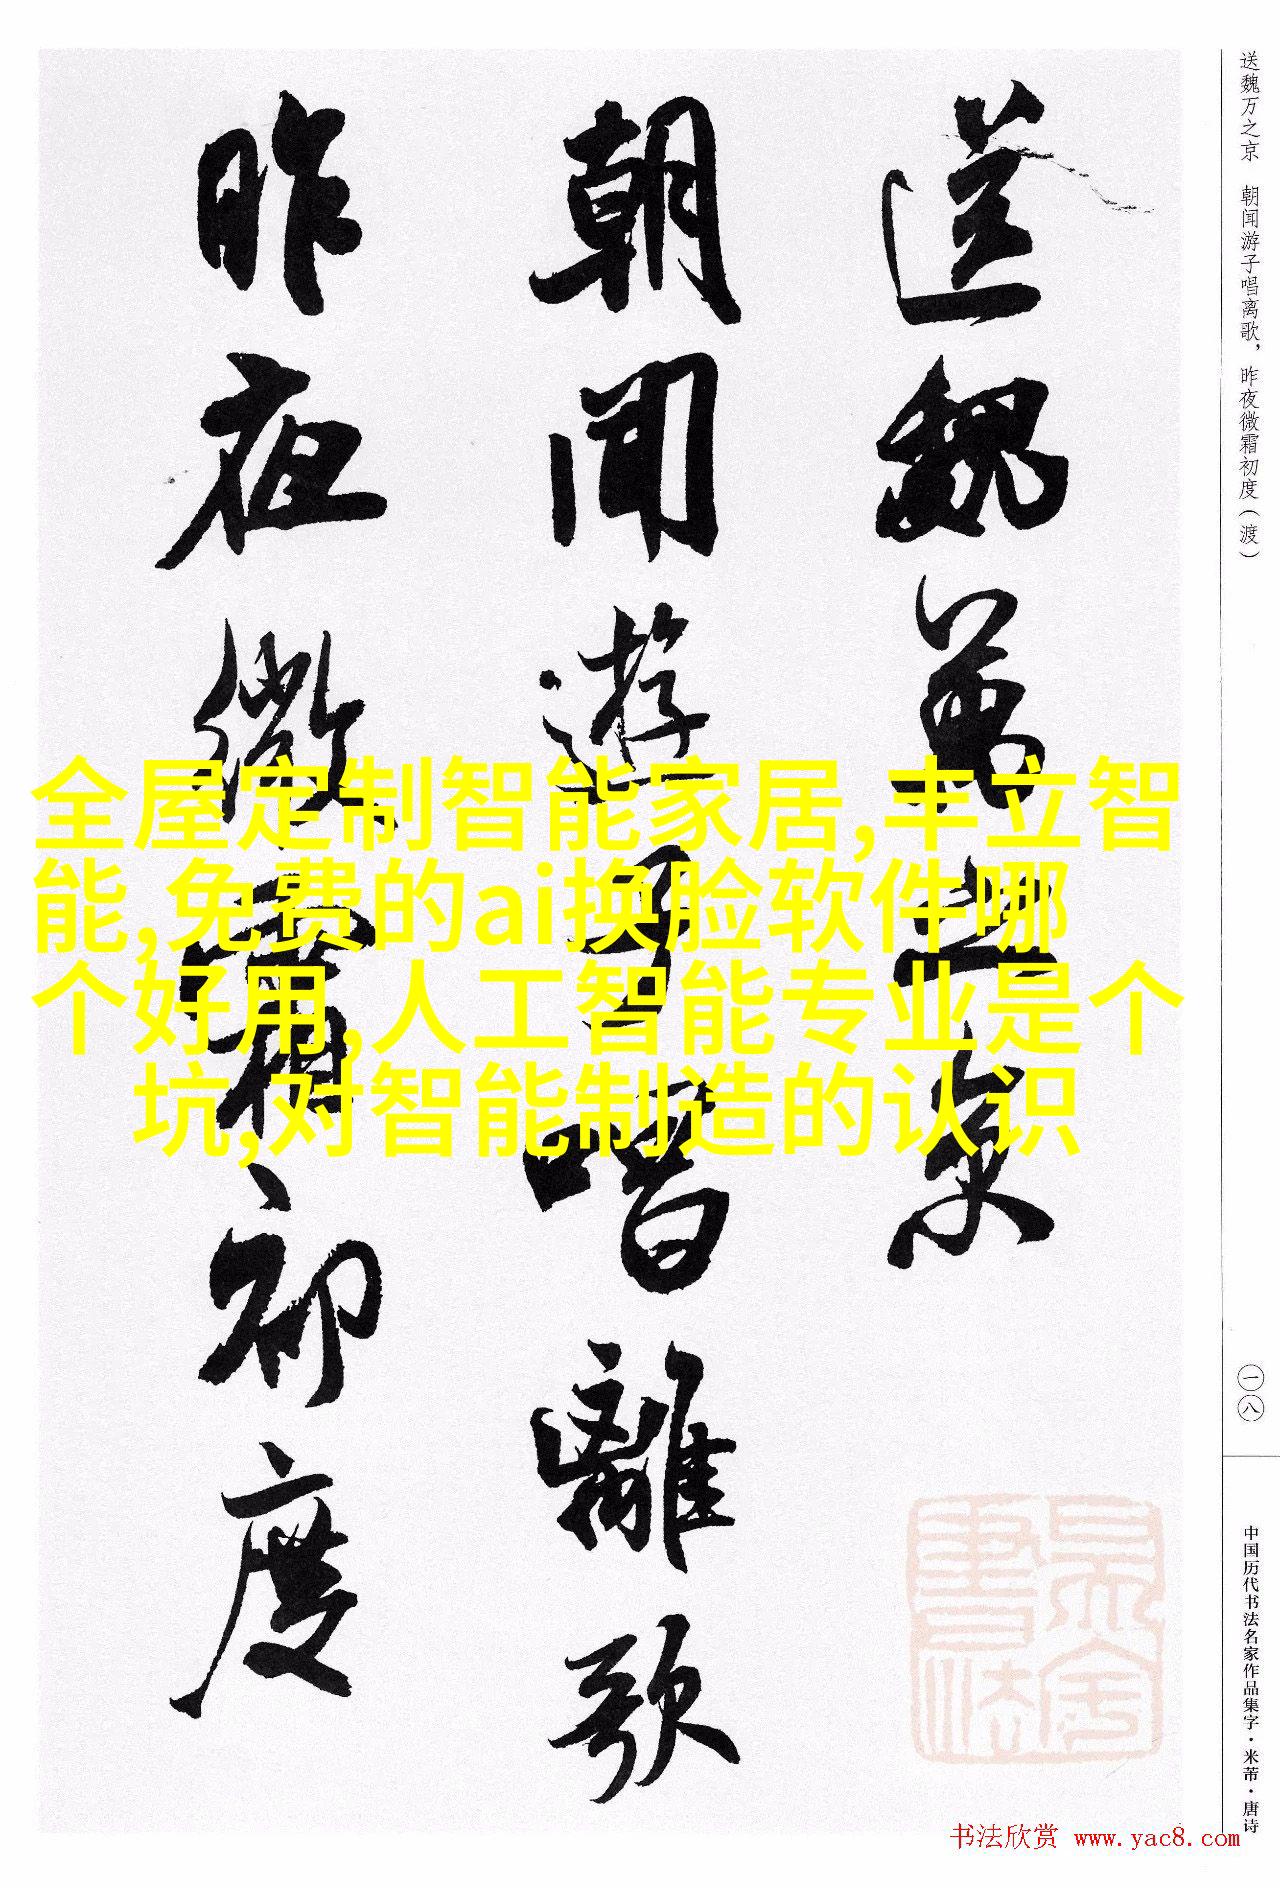 送魏万之京 朝闻游子唱离歌，昨夜微霜初度（渡）
送魏萬之京
朝聞遊子唱離歌
昨夜微霜初度
全屋定制智能家居,丰立智
能,免费的ai换脸软件哪
个好用,人工智能专业是个
坑,对智能制造的认识
一八
中国历代书法名家作品集字·米芾·唐诗
书法欣赏 www.yac8.com